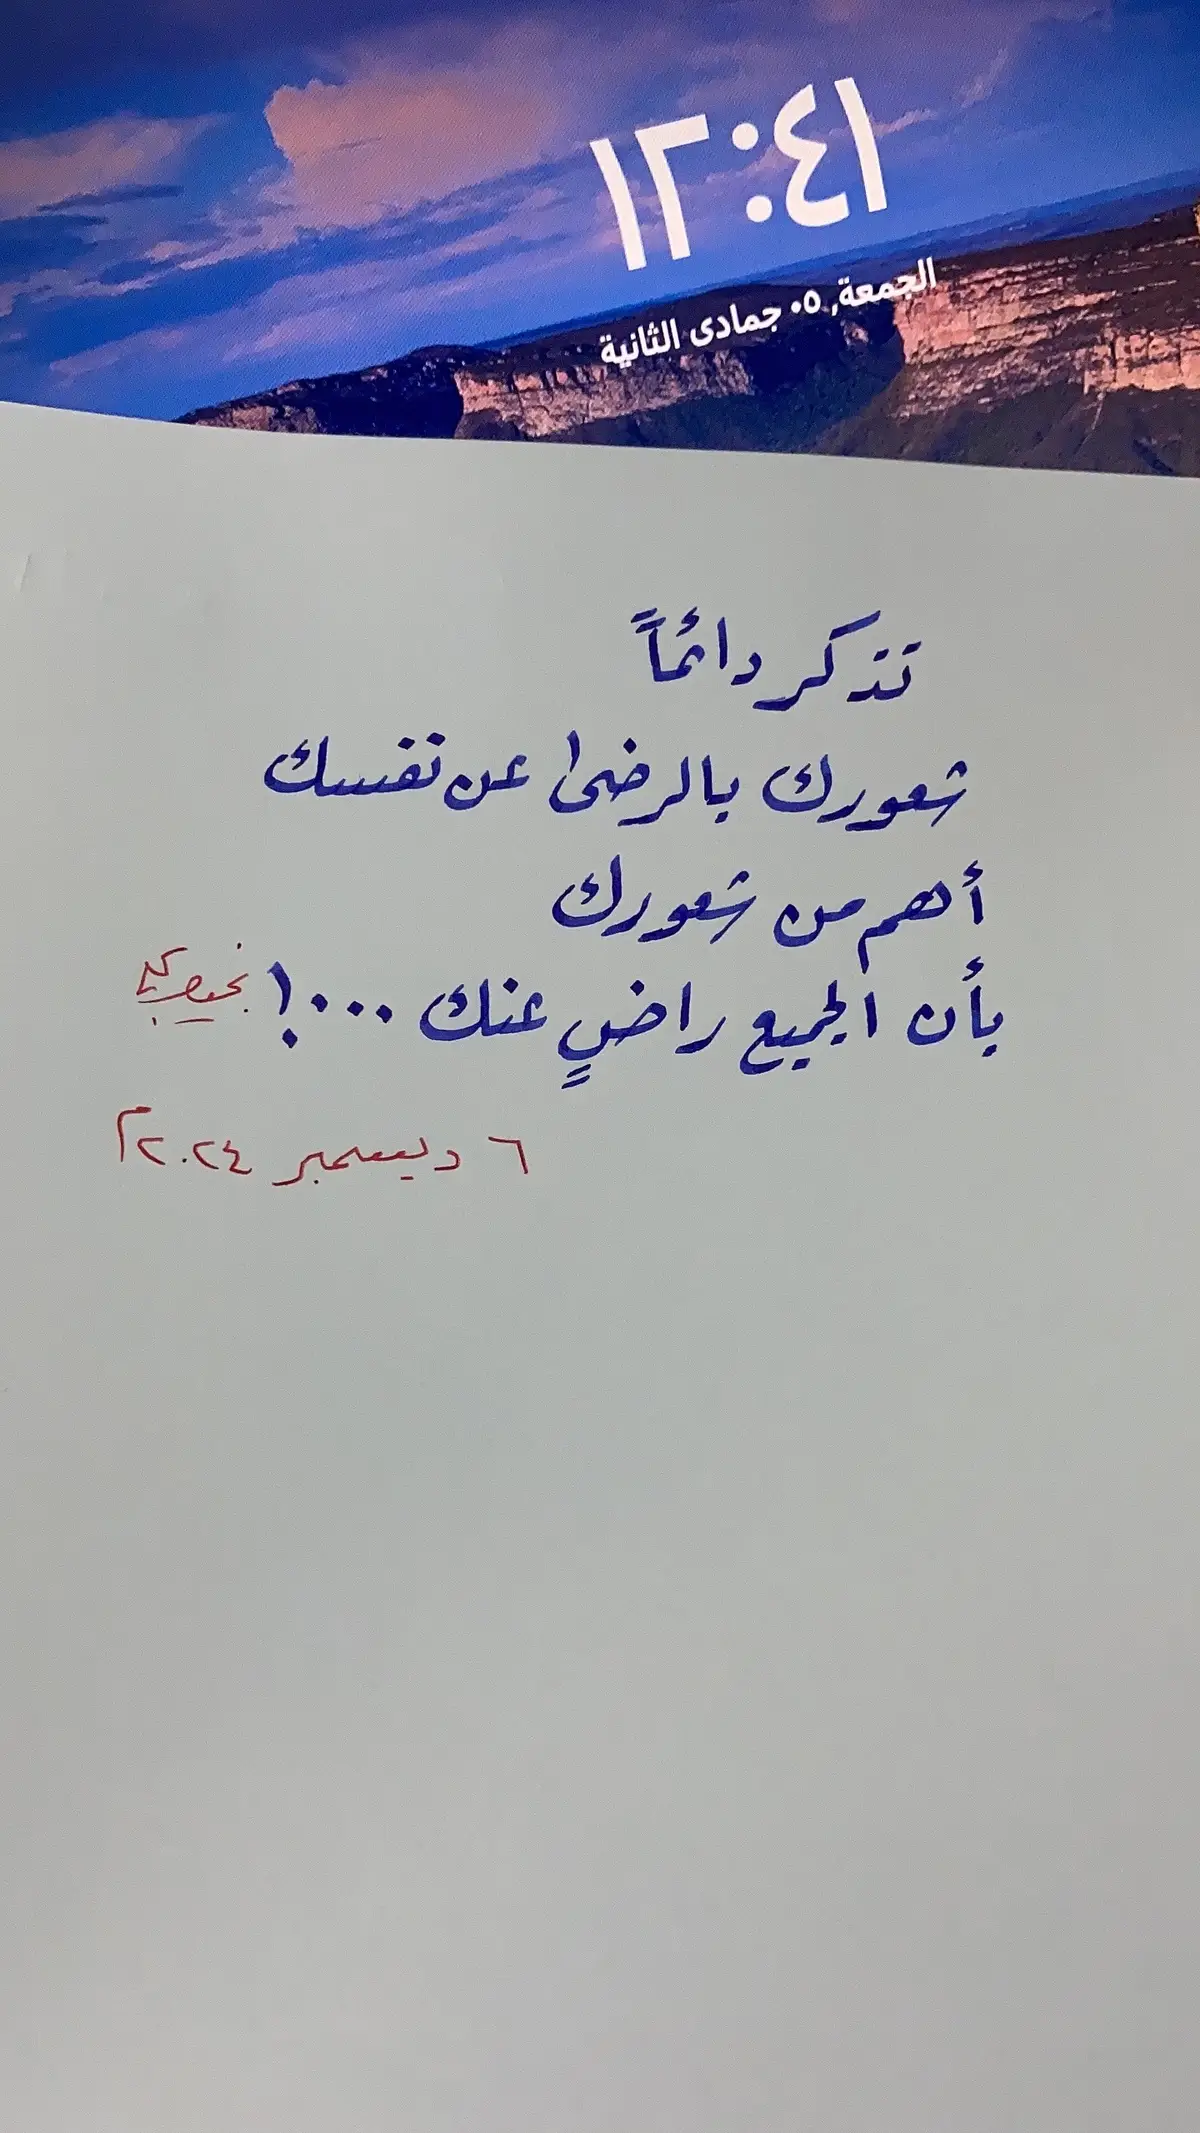 ١٢:٤١
الجمعة, ٠٥ جمادى الثانية
تذكر دائماً
شعورك بالرضى عن نفسك
أهم من شعورك
بأن الجميع راضٍ عنك ...!
٦ ديسمبر ٢٠٢٤م